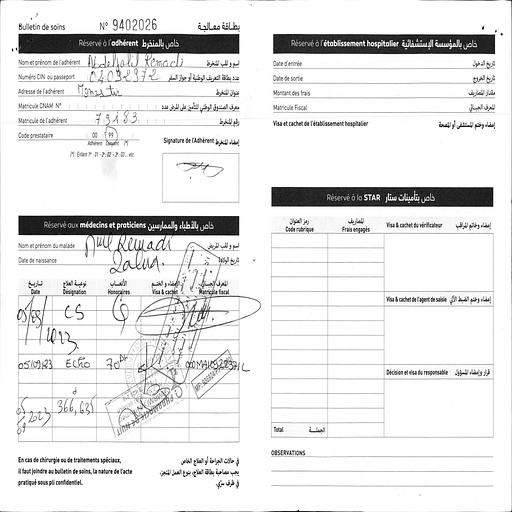 Bulletin de soins N° 9402026 بطاقة معالجة
Réservé à l'adhérent خاص بالمنخرط
Nom et prénom de l'adhérent Abdelhalil Remadi اسم و لقب المنخرط
Numéro CIN ou passeport 04092972 عدد بطاقة التعريف الوطنية أو جواز السفر
Adresse de l'adhérent Monastir عنوان المنخرط
Matricule CNAM N° معرف الصندوق الوطني للتأمين على المرض عدد
Matricule de l'adhérent 73183 رقم المنخرط
Code prestataire 00 99
Adhérent Conjoint (*)
(*): Enfant 1er : 01 - 2e : 02 - 3e : 03 ... etc
Signature de l'Adhérent إمضاء المنخرط
Réservé aux médecins et praticiens خاص بالأطباء والممارسين
Nom et prénom du malade Mme Remadi اسم و لقب المريض
Date de naissance تاريخ الولادة
تاريخ نوعية العلاج الأتعاب الإمضاء و الختم المعرف الجبائي
Date Désignation Honoraires Visa & cachet Matricule fiscal
CS
05/09/23 ECHO 70
366,635
En cas de chirurgie ou de traitements spéciaux,
il faut joindre au bulletin de soins, la nature de l'acte
pratiqué sous pli confidentiel.
في حالات الجراحة أو العلاج الخاص
يجب مصاحبة بطاقة العلاج، بنوع العمل المنجز،
في ظرف سري.
Réservé à l'établissement hospitalier خاص بالمؤسسة الإستشفائية
Date d'entrée تاريخ الدخول
Date de sortie تاريخ الخروج
Montant des frais مقدار المصاريف
Matricule Fiscal المعرف الجبائي
Visa et cachet de l'établissement hospitalier إمضاء وختم المستشفى أو المصحة
Réservé à la STAR خاص بتأمينات ستار
رمز العنوان المصاريف
Code rubrique Frais engagés
Visa & cachet du vérificateur إمضاء وخاتم المراقب
Visa & cachet de l'agent de saisie إمضاء وختم الضبط الآلي
Décision et visa du responsable قرار وإمضاء المسؤول
Total الجملة
OBSERVATIONS